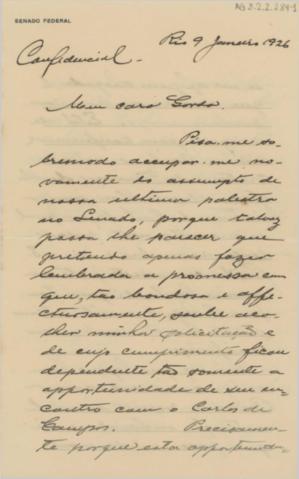 AG 2.2.2.284-1
SENADO FEDERAL
Rio 9 Janeiro 1926
Confidencial.
Meu caro Gordo.
Pesa-me so-
bremodo occupar-me no-
vamente do assumpto de
nossa ultima palestra
no Senado, porque talvez
possa lhe parecer que
pretendo apenas fazer
lembrada a promessa com
que, tão bondosa e affe-
ctuosamente, soube aco-
lher minha solicitação e
de cujo cumprimento ficou
dependente, tão somente a
opportunidade de seu en-
contro com o Carlos de
Campos. Precisamen-
te porque esta opportuni-